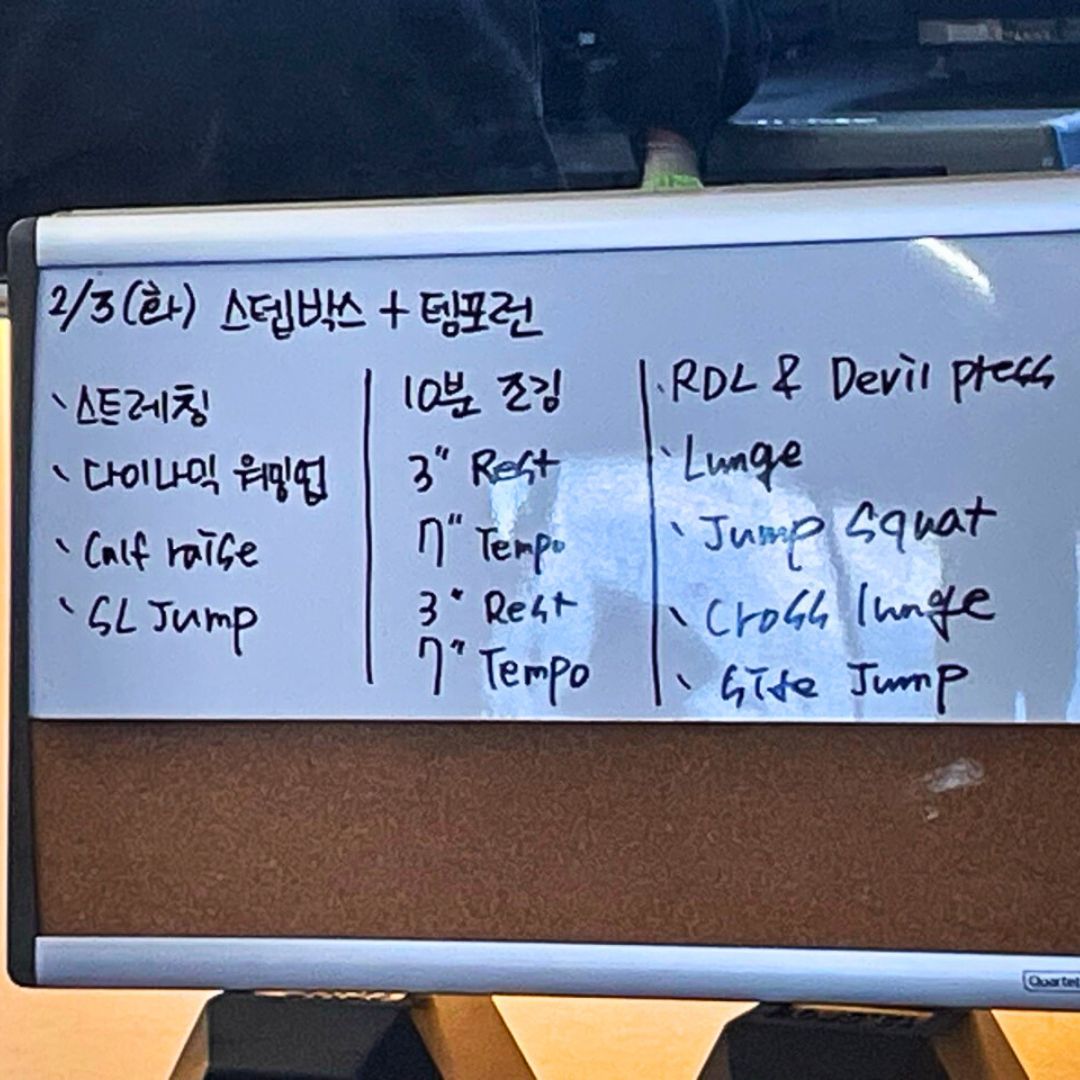 2/3(화) 스텝박스 + 템포런
` 스트레칭
` 다이나믹 워밍업
` Calf raise
` SL Jump
10분 조깅
3" Rest
7" Tempo
3" Rest
7" Tempo
` RDL & Devil press
` Lunge
` Jump squat
` Cross lunge
` Side Jump
Quartet